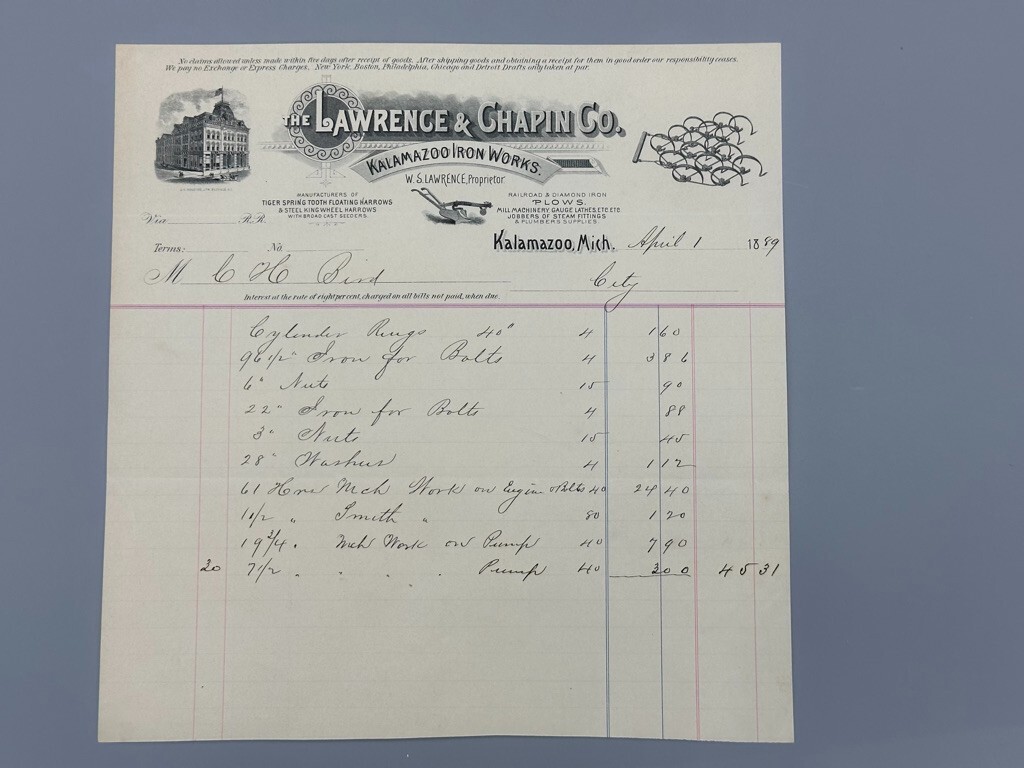 No claims allowed unless made within five days after receipt of goods. After shipping goods and obtaining a receipt for them in good order our responsibility ceases.
We pay no Exchange or Express Charges. New York, Boston, Philadelphia, Chicago and Detroit Drafts only taken at par.
THE LAWRENCE & CHAPIN CO.
KALAMAZOO IRON WORKS.
W. S. LAWRENCE, Proprietor
MANUFACTURERS OF
TIGER SPRING TOOTH FLOATING HARROWS
& STEEL KING WHEEL HARROWS
WITH BROAD CAST SEEDERS.
RAILROAD & DIAMOND IRON
PLOWS.
MILL MACHINERY GAUGE LATHES ETC. ETC.
JOBBERS OF STEAM FITTINGS
& PLUMBERS SUPPLIES.
Via R.R.
Terms: No.
Kalamazoo, Mich. April 1 1889
M C H Bird City
Interest at the rate of eight per cent, charged on all bills not paid, when due.
Cylinder Rings 40" 4 1 60
96 1/2" Iron for Bolts 4 3 86
6" Nuts 15 90
22" Iron for Bolts 4 88
3" Nuts 15 45
28" Washers 4 1 12
61 Hrs Mch Work on Engin & Bolts 40 24 40
1 1/2 " Smith " 80 1 20
19 3/4 " Mch Work on Pump 40 7 90
30 7 1/2 " " " " Pump 40 3 00 45 31